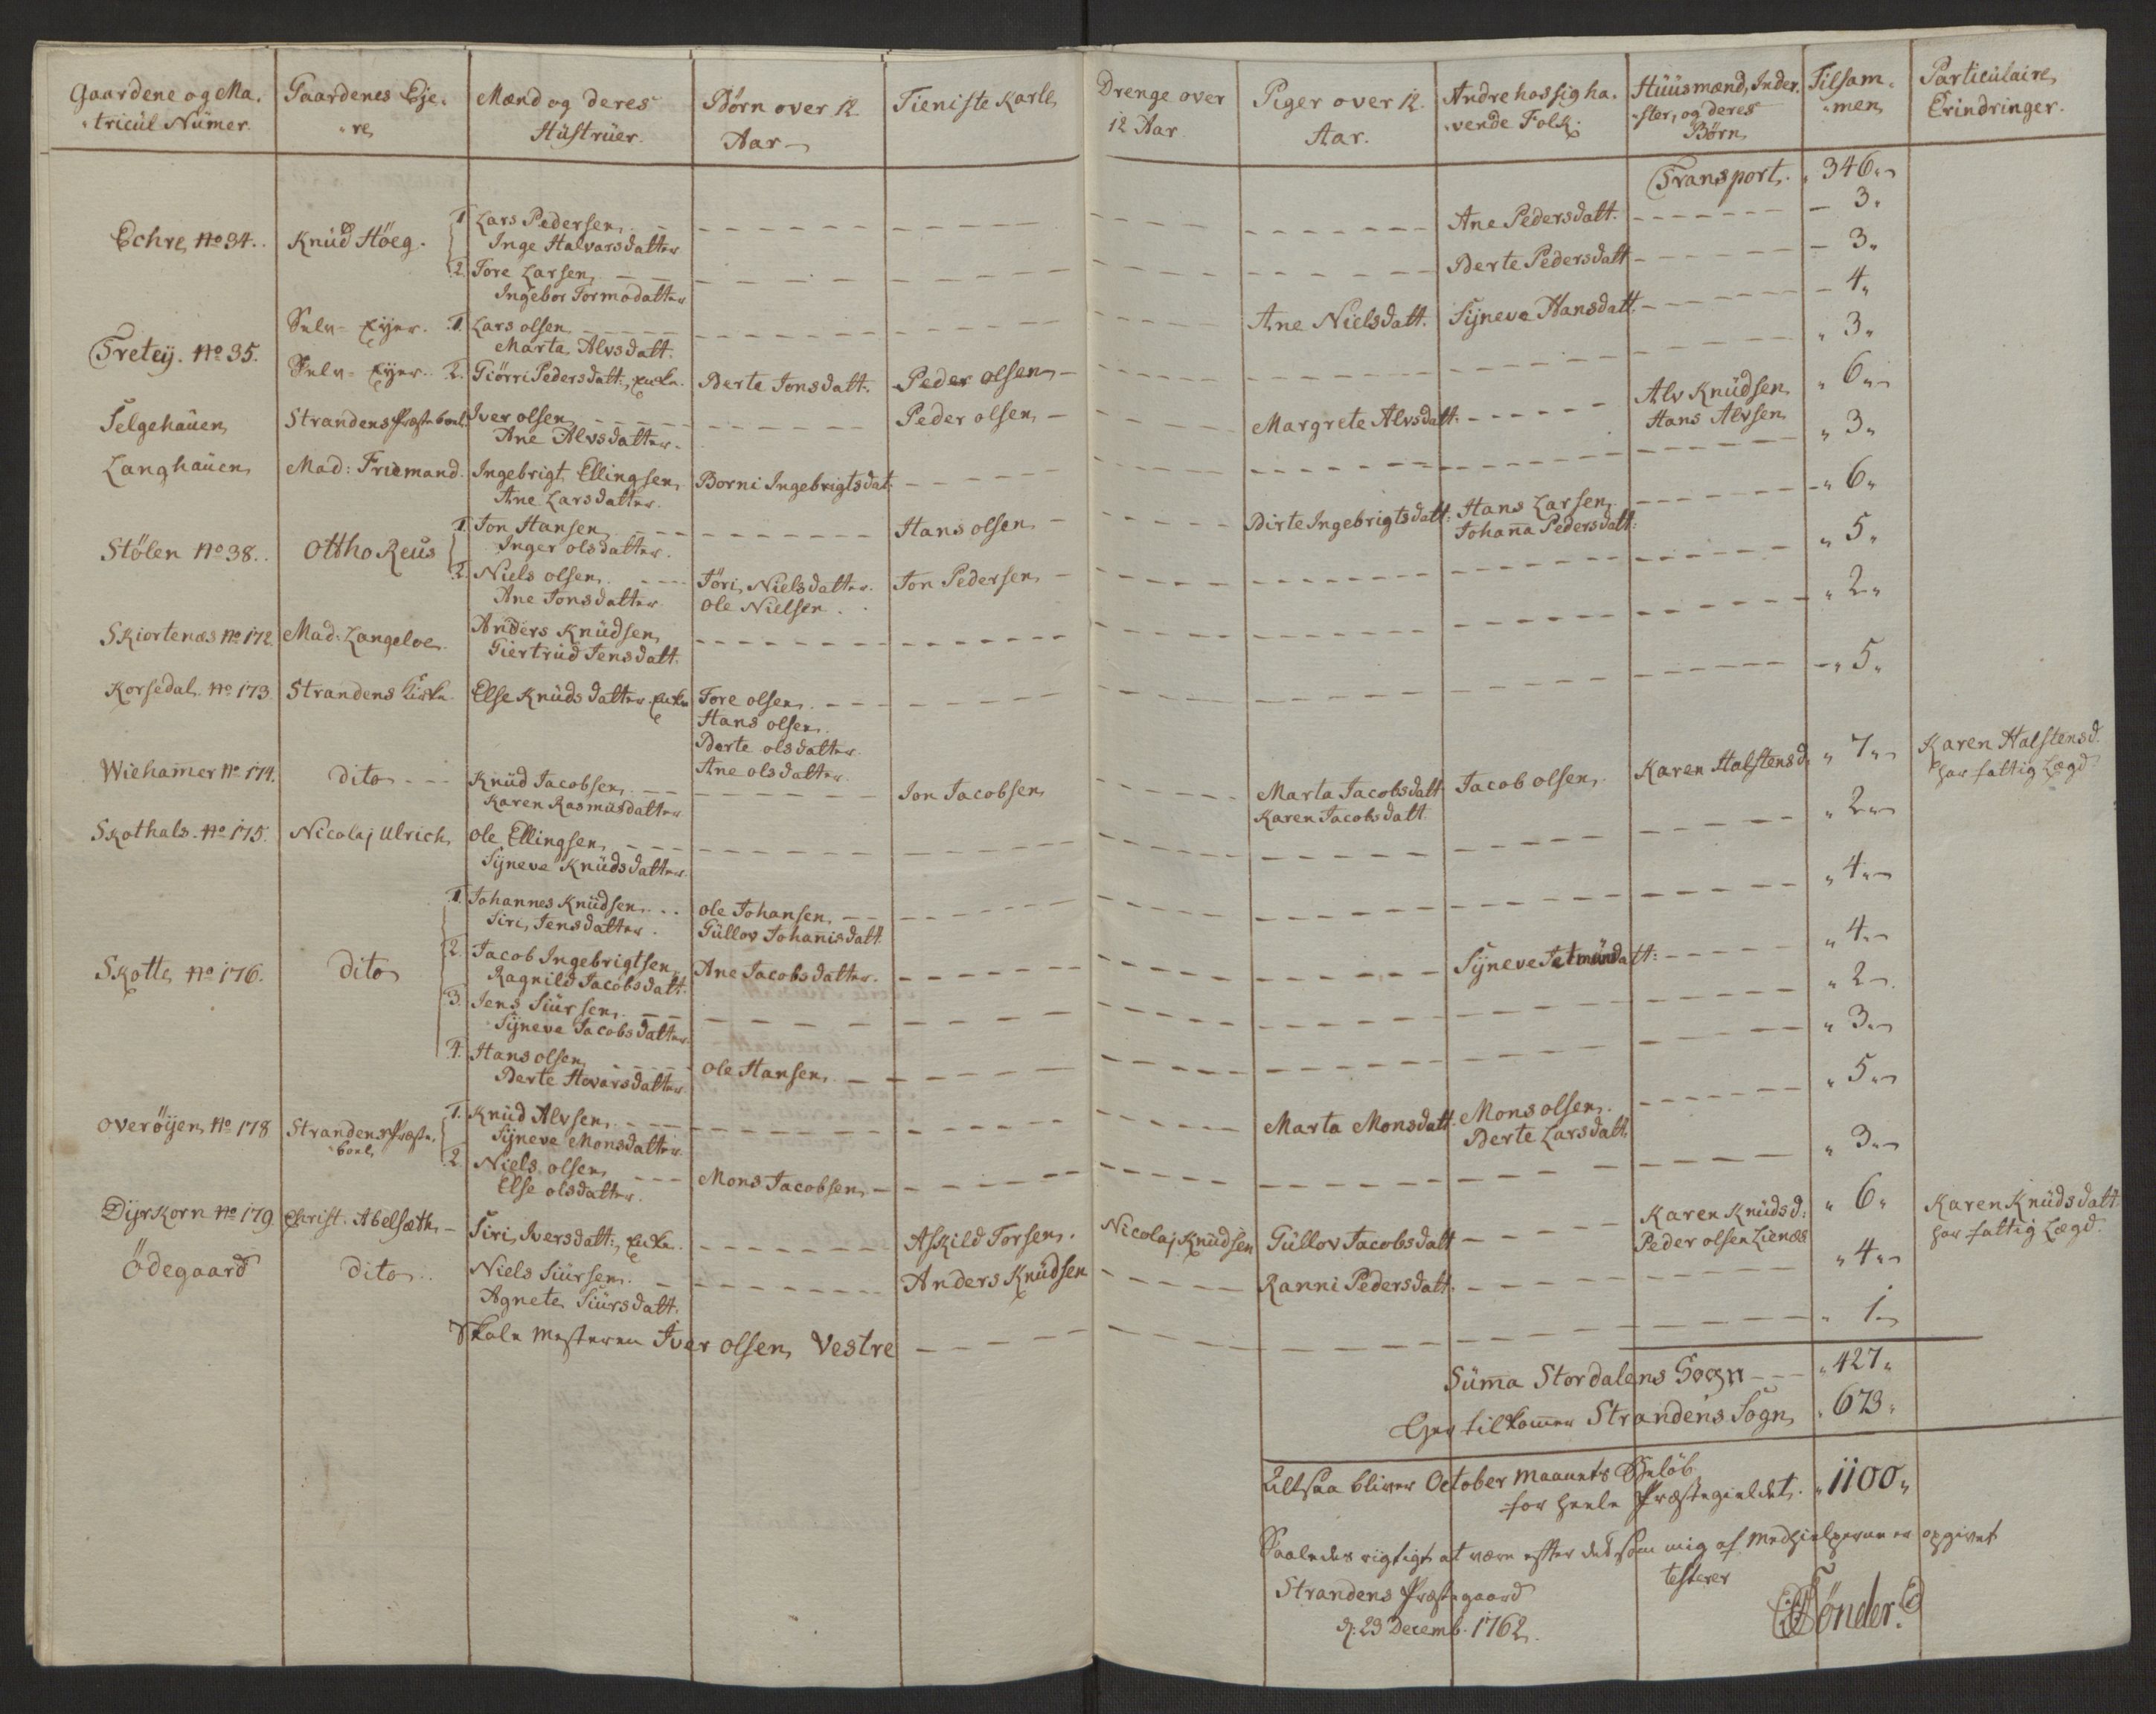 Gaardene og Ma- Gaardenes Eje- Mænd og deres Børn over 12 Tieniste Karle Drenge over Piger over 12. Andre hos sig ha- Huusmænd, Inder- Tilsam- Particulaire
tricul Numer. re Hustruer. Aar 12 Aar Aar. vende Folk. ster, og deres Børn men Erindringer.
Transport. 346.
Echre No 34. Knud Höeg. 1. Lars Pedersen Ane Pedersdatt. 3.
Inge Halvarsdatter
2. Tore Larsen Berte Pedersdatt 3.
Ingebor Tormodatter
Treteÿ. No 35. Selv-Eyer. 1. Lars olsen Ane Nielsdatt. Sÿneve Hansdatt. 4.
Marta Alvsdatt.
Selv-Eyer. 2. Giörri Pedersdatt:, Enke. Berte Jonsdatt. Peder olsen 3.
Felgehauen Strandens Præsteboel. Iver olsen Peder olsen Margrete Alvsdatt. Alv Knudsen 6.
Ane Alvsdatter. Hans Alvsen
Langhauen Mad: Friemand. Ingebrigt Ellingsen Borni Ingebrigtsdat. 3.
Ane Larsdatter.
Stölen No 38. Ottho Reus 1. Jon Hansen Hans olsen Dirte Ingebrigtsdatt: Hans Larsen 6.
Inger olsdatter. Johanna Pedersdatt:
2. Niels olsen Töri Nielsdatter. Jon Pedersen 5.
Ane Jonsdatter Ole Nielsen.
Skiortenæs No 172. Mad: Langeloe. Anders Knudsen 2.
Giertrud Jensdatt.
Korsedal No 173. Strandens Kirke Else Knudsdatter Enke Tore olsen 5.
Hans olsen.
Berte olsdatter.
Ane olsdatter.
Wiehamer No 174. dito Knud Jacobsen Jon Jacobsen Marta Jacobsdatt Jacob olsen. Karen Halstensd. 7. Karen Halstensd.
Karen Rasmusdatter Karen Jacobsdatt. har fattig Lægd.
Skothals. No 175. Nicolaj Ulrich Ole Ellingsen 2.
Sÿneve Knudsdatter.
Skotte No 176. dito 1. Johannes Knudsen Ole Johansen 4.
Siri Jensdatter. Gullov Johanisdatt.
2. Jacob Ingebrigtsen Ane Jacobsdatter. Sÿneve Jetmundatt: 4.
Ragnild Jacobsdatt.
3. Jens Siursen 2.
Sÿneve Jacobsdatter.
4. Hans olsen Ole Hansen. 3.
Berte Hovarsdatter.
overöÿen No 178 Strandens Præste- 1. Knud Alvsen Marta Monsdatt. Mons olsen. 5.
boel Sÿneve Monsdatter. Berte Larsdatt.
2. Niels olsen Mons Jacobsen 3.
Else olsdatter.
Dÿrkorn No 179 Christ. Abelsæth Siri Iversdatt:, Enke. Askild Torsen. Nicolaj Knudsen Gullov Jacobsdatt Karen Knudsd: 6. Karen Knudsdatt
Peder olsen Lienæs har fattig Lægd
Ödegaard dito Niels Siursen. Anders Knudsen Ranni Pedersdatt. 4.
Agnete Siursdatt.
Skole Mesteren Iver olsen Vestre 1.
Suma Stordalens Sogn 427.
Her til komer Strandens Sogn 673.
Altsaa bliver October Maanets Beløb
for heele Præstegieldet. 1100.
Saaledes rigtigt at være efter det som mig af Medhielperne er opgivet
testerer
Strandens Præstegaard
d: 23 Decemb. 1762. Tönder.